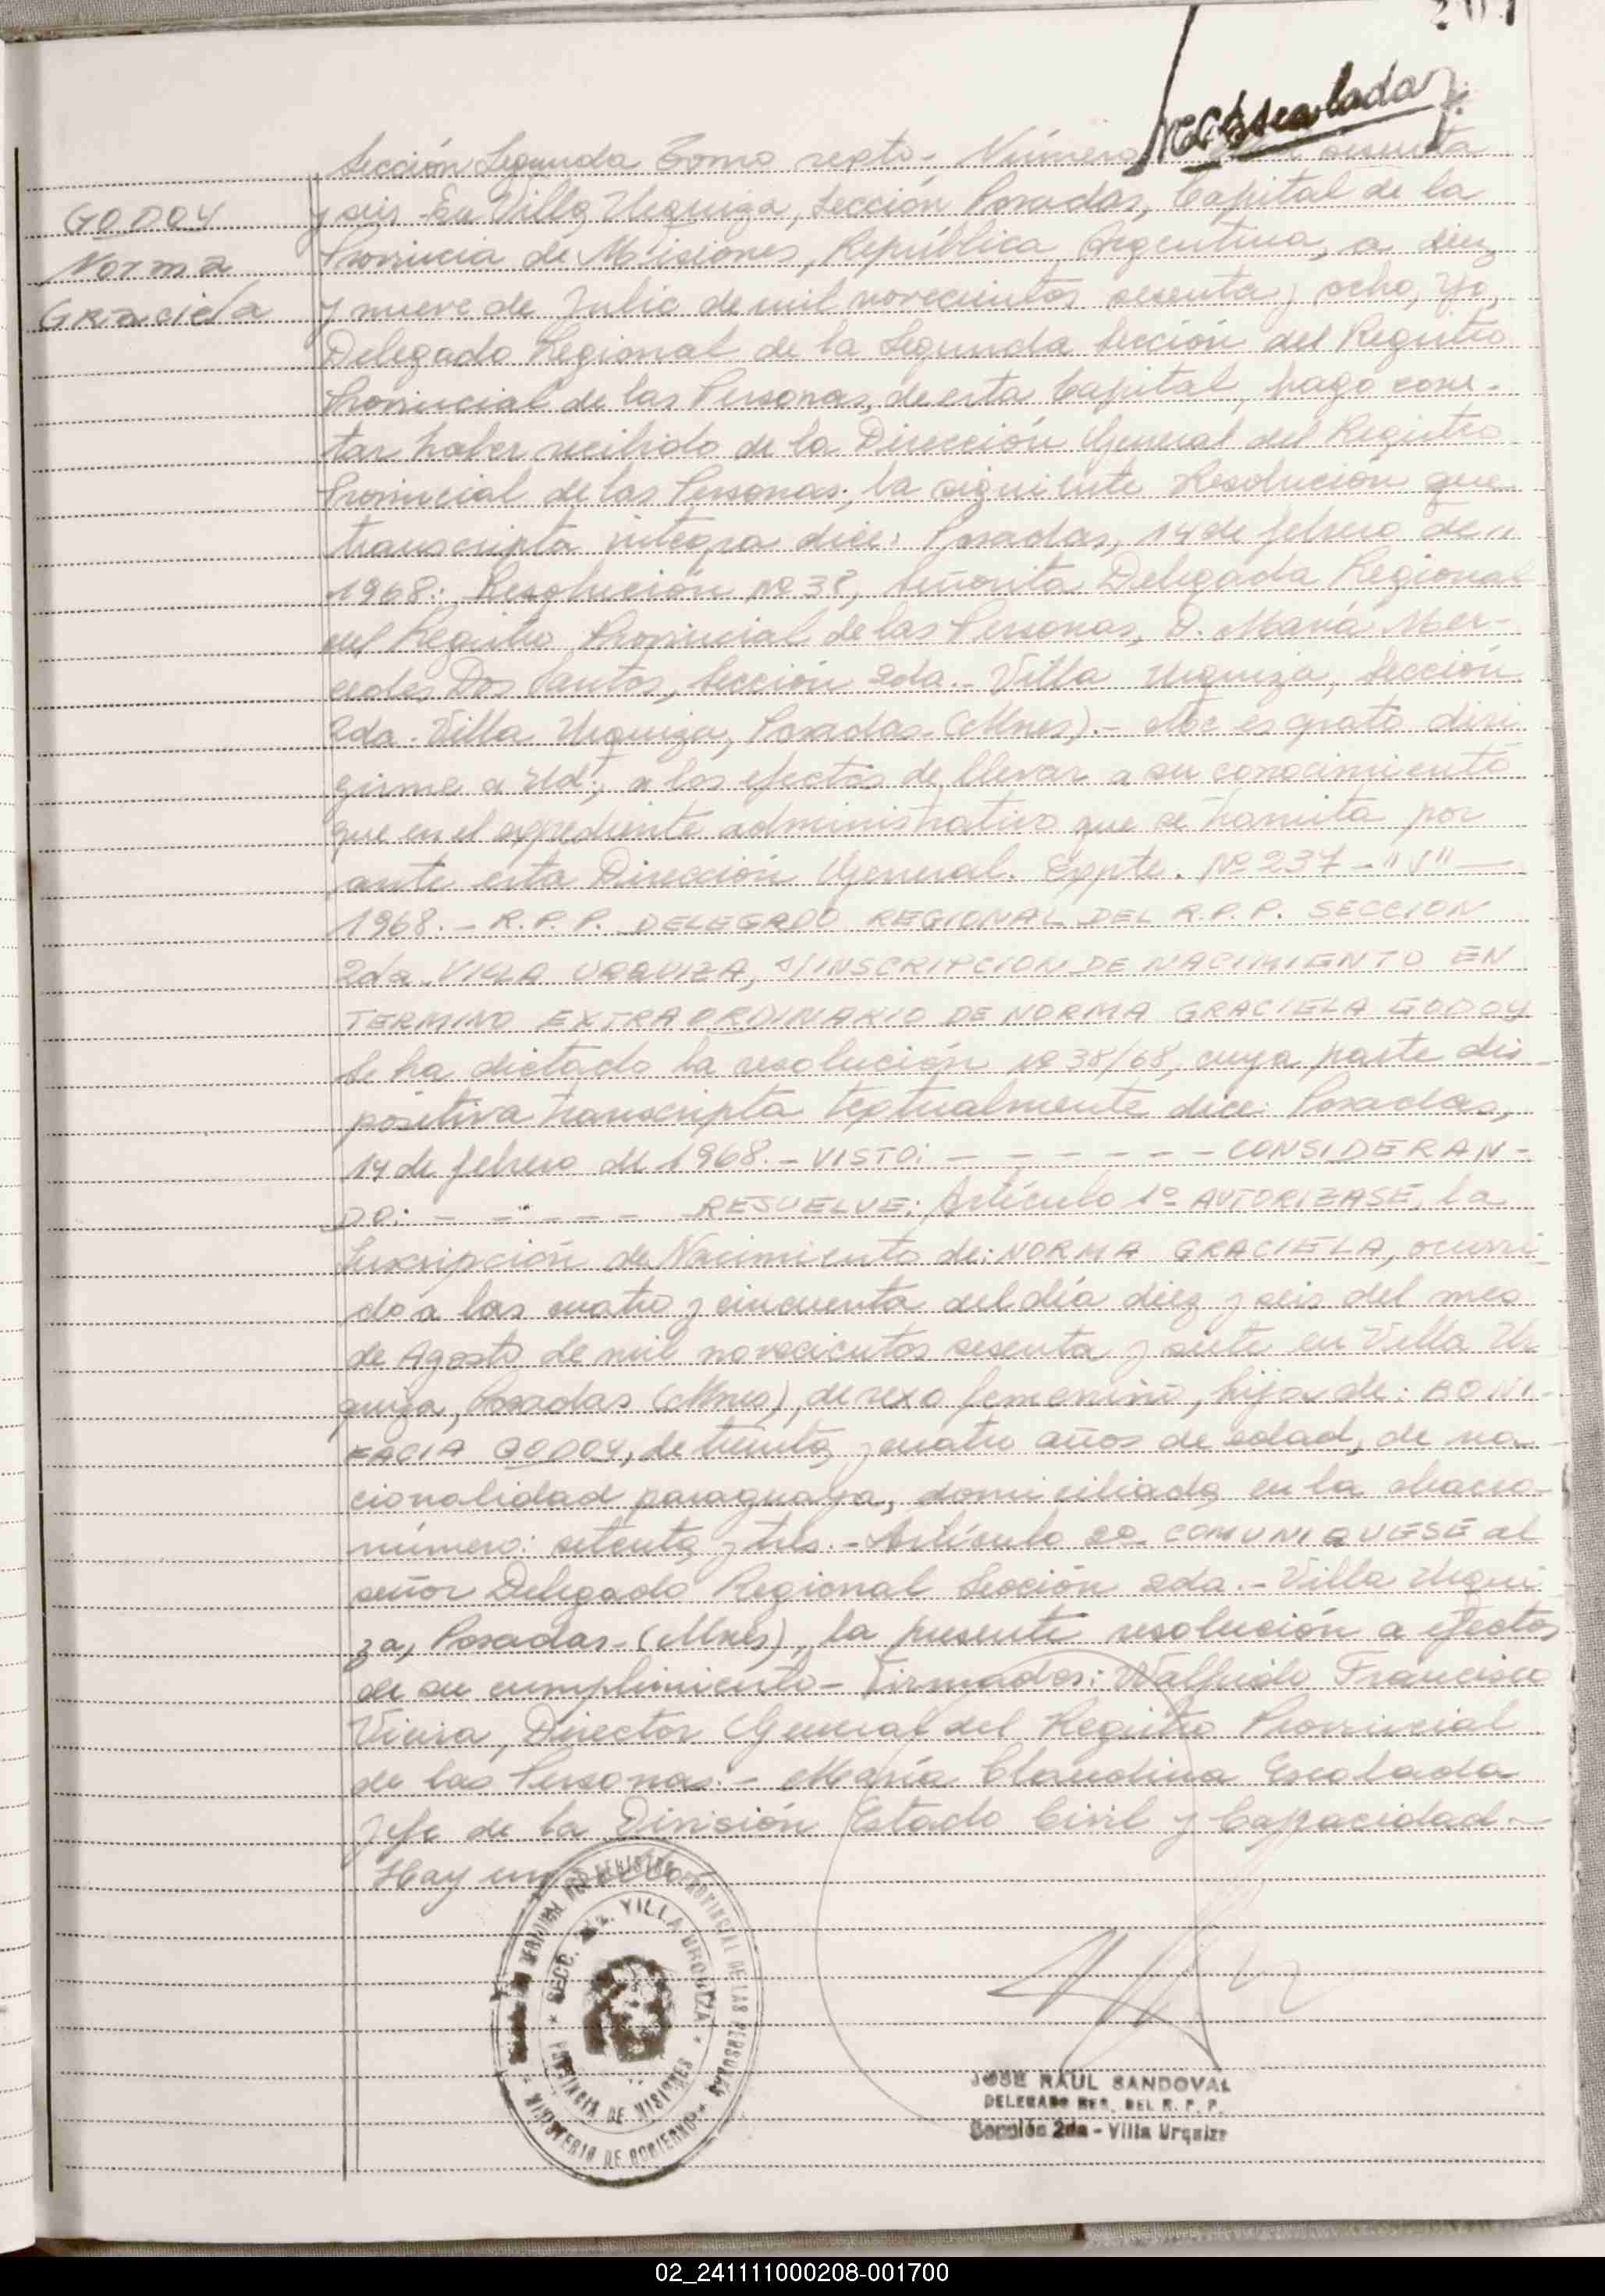 MCEscalada
GODOY
Norma
Graciela
Sección Segunda Tomo sexto - Número sesenta
y seis En Villa Urquiza, Sección Posadas, Capital de la
Provincia de Misiones, República Argentina, a diez
y nueve de Julio de mil novecientos sesenta y ocho, yo,
Delegado Regional de la Segunda Sección del Registro
Provincial de las Personas, de esta Capital, hago cons-
tar haber recibido de la Dirección General del Registro
Provincial de las Personas, la siguiente Resolución que
transcripta integra dice: Posadas, 14 de febrero de
1968: Resolución Nº 38, Señorita Delegada Regional
del Registro Provincial de las Personas, D. María Mer-
cedes Dos Santos, Sección 2da.- Villa Urquiza, Sección
2da. Villa Urquiza, Posadas (Mnes).- Me es grato diri
girme a Ud., a los efectos de llevar a su conocimiento
que en el expediente administrativo que se tramita por
ante esta Dirección General. Expte. Nº 237 - "V" —
1968.- R.P.P. DELEGADO REGIONAL DEL R.P.P. SECCION
2da. VILLA URQUIZA, S/INSCRIPCION DE NACIMIENTO EN
TERMINO EXTRAORDINARIO DE NORMA GRACIELA GODOY
Se ha dictado la resolución Nº 38/68, cuya parte dis
positiva transcripta textualmente dice: Posadas,
14 de febrero de 1968.- VISTO: - - - - - - - CONSIDERAN-
DO: - - - - - RESUELVE: Artículo 1º AUTORIZASE, la
Inscripción de Nacimiento de: NORMA GRACIELA, ocurri
do a las cuatro y cincuenta del día diez y seis del mes
de Agosto de mil novecientos sesenta y siete en Villa Ur
quiza, Posadas (Mnes), de sexo femenino, hija de: BONI-
FACIA GODOY, de treinta y cuatro años de edad, de na
cionalidad paraguaya, domiciliada en la chacra
número: setenta y tres.- Artículo 2º COMUNIQUESE al
señor Delegado Regional Sección 2da.- Villa Urqui
za, Posadas - (Mnes), la presente resolución a efectos
de su cumplimiento - Firmados: Walfrido Francisco
Vieira, Director General del Registro Provincial
de las Personas.- María Claudina Escalada
Jefe de la División Estado Civil y Capacidad -
Hay un sello
REGISTRO PROVINCIAL DE LAS PERSONAS
MINISTERIO DE GOBIERNO
SECC. 2da. VILLA URQUIZA
PROVINCIA DE MISIONES
JOSE RAUL SANDOVAL
DELEGADO REG. DEL R. P. P.
Sección 2da - Villa Urquiza
02_241111000208-001700